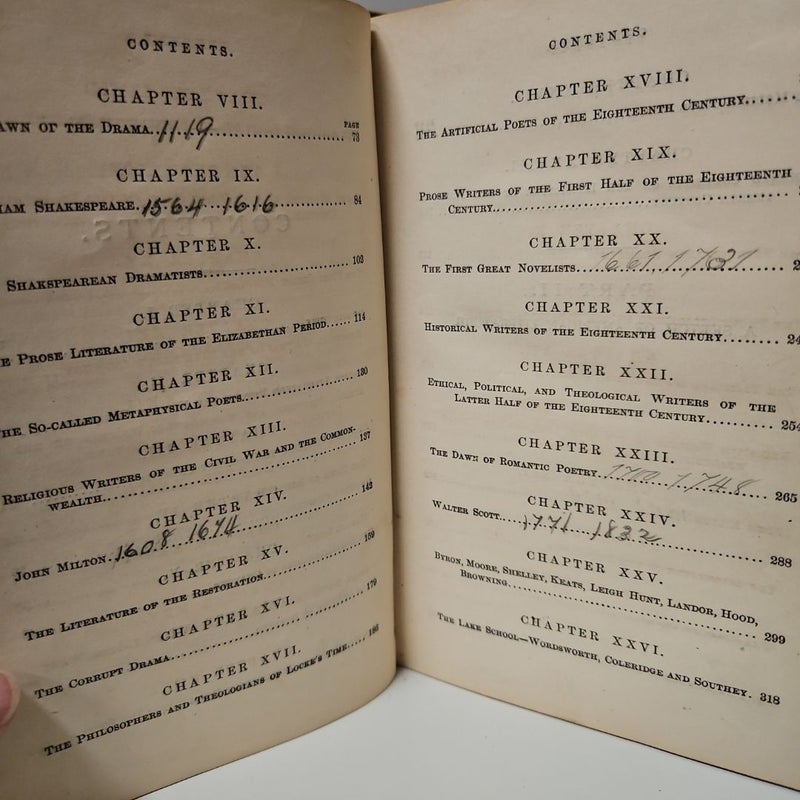 CONTENTS.
CHAPTER VIII.
AWN OF THE DRAMA. 1119 PAGE 73
CHAPTER IX.
IAM SHAKESPEARE. 1564 1616 84
CHAPTER X.
SHAKSPEAREAN DRAMATISTS. 102
CHAPTER XI.
E PROSE LITERATURE OF THE ELIZABETHAN PERIOD. 114
CHAPTER XII.
HE SO-CALLED METAPHYSICAL POETS. 130
CHAPTER XIII.
RELIGIOUS WRITERS OF THE CIVIL WAR AND THE COMMON-
WEALTH. 137
CHAPTER XIV.
JOHN MILTON. 1608 1674 142
CHAPTER XV.
THE LITERATURE OF THE RESTORATION. 159
CHAPTER XVI.
THE CORRUPT DRAMA. 179
CHAPTER XVII.
THE PHILOSOPHERS AND THEOLOGIANS OF LOCKE'S TIME.
CONTENTS.
CHAPTER XVIII.
THE ARTIFICIAL POETS OF THE EIGHTEENTH CENTURY.
CHAPTER XIX.
PROSE WRITERS OF THE FIRST HALF OF THE EIGHTEENTH
CENTURY.
CHAPTER XX.
THE FIRST GREAT NOVELISTS. 1661 1731 2
CHAPTER XXI.
HISTORICAL WRITERS OF THE EIGHTEENTH CENTURY. 24
CHAPTER XXII.
ETHICAL, POLITICAL, AND THEOLOGICAL WRITERS OF THE
LATTER HALF OF THE EIGHTEENTH CENTURY. 254
CHAPTER XXIII.
THE DAWN OF ROMANTIC POETRY. 1700 1748 265
CHAPTER XXIV.
WALTER SCOTT. 1771 1832 288
CHAPTER XXV.
BYRON, MOORE, SHELLEY, KEATS, LEIGH HUNT, LANDOR, HOOD,
BROWNING. 299
CHAPTER XXVI.
THE LAKE SCHOOL—WORDSWORTH, COLERIDGE AND SOUTHEY. 318